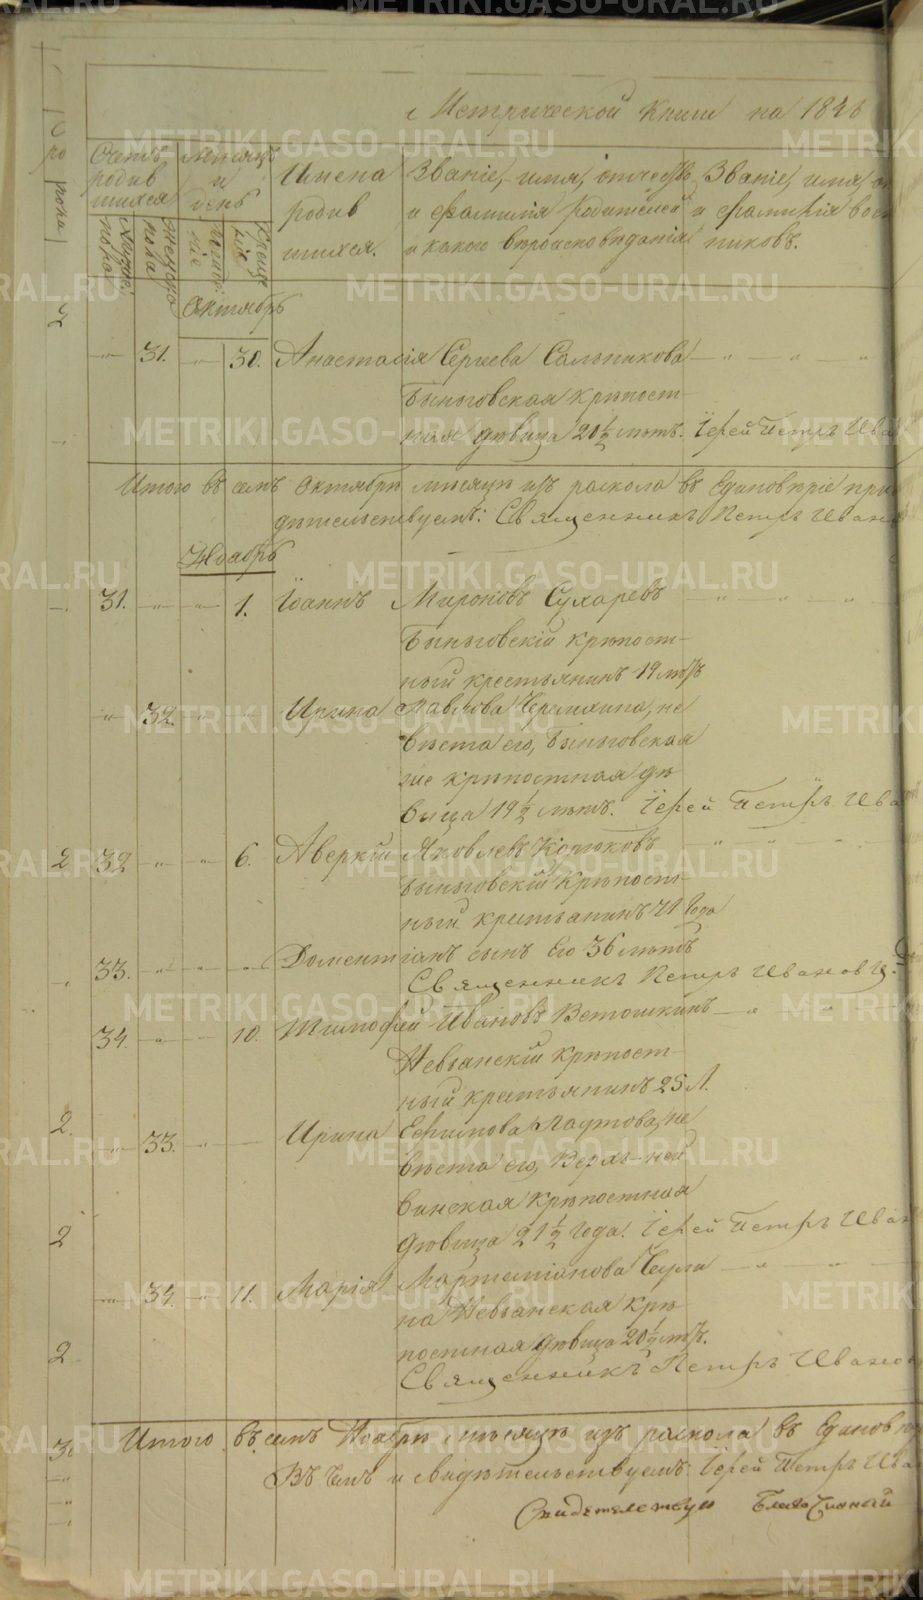 Метрической книги на 184
Счетъ родив шихся
Месяцъ и день
Имена родив шихся.
Званіе, имя, отчество и фамилія родителей и какого вероисповеданія
Званіе, имя, и фамилія воспри никовъ.
Мужес. пола
Женско пола
Октябрь
31. 30. Анастасія Сергеева Сальникова
Быньговская крепост-
ная девица 20½ летъ. Іерей Петръ Ива
Итого въ семъ Октябре месяце изъ раскола въ Единоверіе при
детельствуемъ: Священникъ Петръ Ивано
Ноябрь
31. 1. Іоаннъ Мироновъ Сухаревъ
Быньговскій крепост-
ный крестьянинъ 19 летъ
32. Ирина Павлова Черемхина, не
веста его, Быньговская
же крепостная де
вица 19½ летъ. Іерей Петръ Ива
2 32 6. Аверкій Яковлевъ
Быньговскій крепост-
ный крестьянинъ 71 года
33. Доментіанъ сынъ его 36 летъ
Священникъ Петръ Ивановъ.
34. 10. Тимофей Ивановъ Ветошкинъ
Невьянскій крепост-
ный крестьянинъ 25 л.
2. 33. Ирина Ефимова Лаутова, не
веста его, Верхъ-ней
винская крепостная
2 девица 21½ года. Іерей Петръ Иван
34. 11. Марія Мартеміанова Чаги
на Невьянская кре
постная девица 20½ летъ.
2 Священникъ Петръ Ивано
3. Итого въ семъ Ноябре месяце изъ раскола въ Единов
въ чемъ и свидетельствуемъ: Іерей Петръ Ива
Свидетельствую Благочинный
METRIKI.GASO-URAL.RU